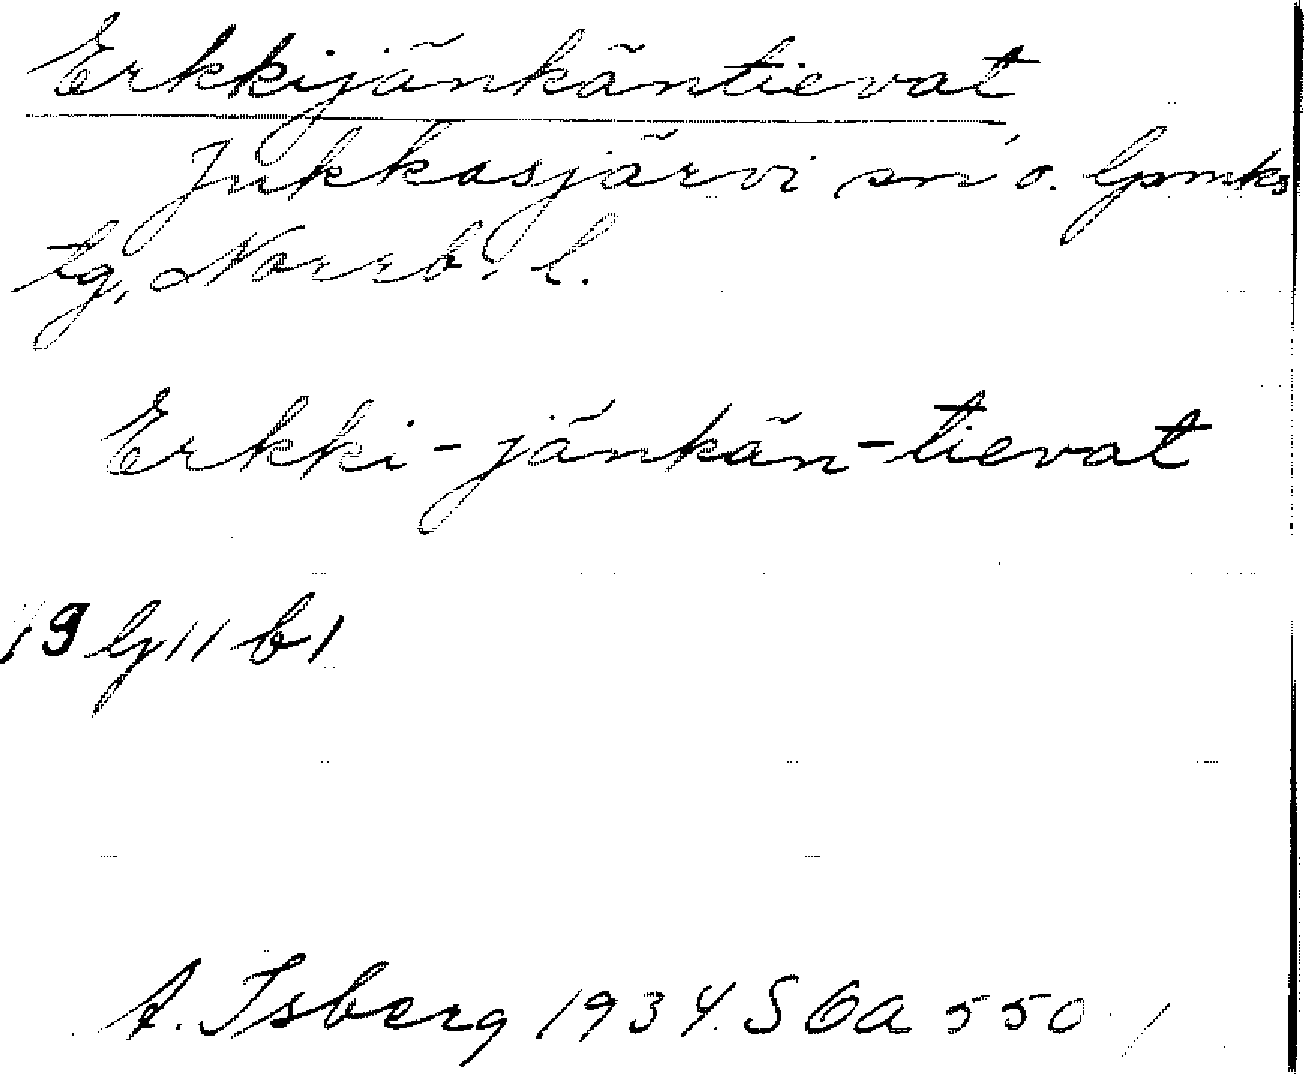 Erkkijänkäntievat
Jukkasjärvi sn o. lpmks
tg, Norrb. l.
Erkki-jänkän-tievat
19 b1
A. Isberg 1934. SOA 550